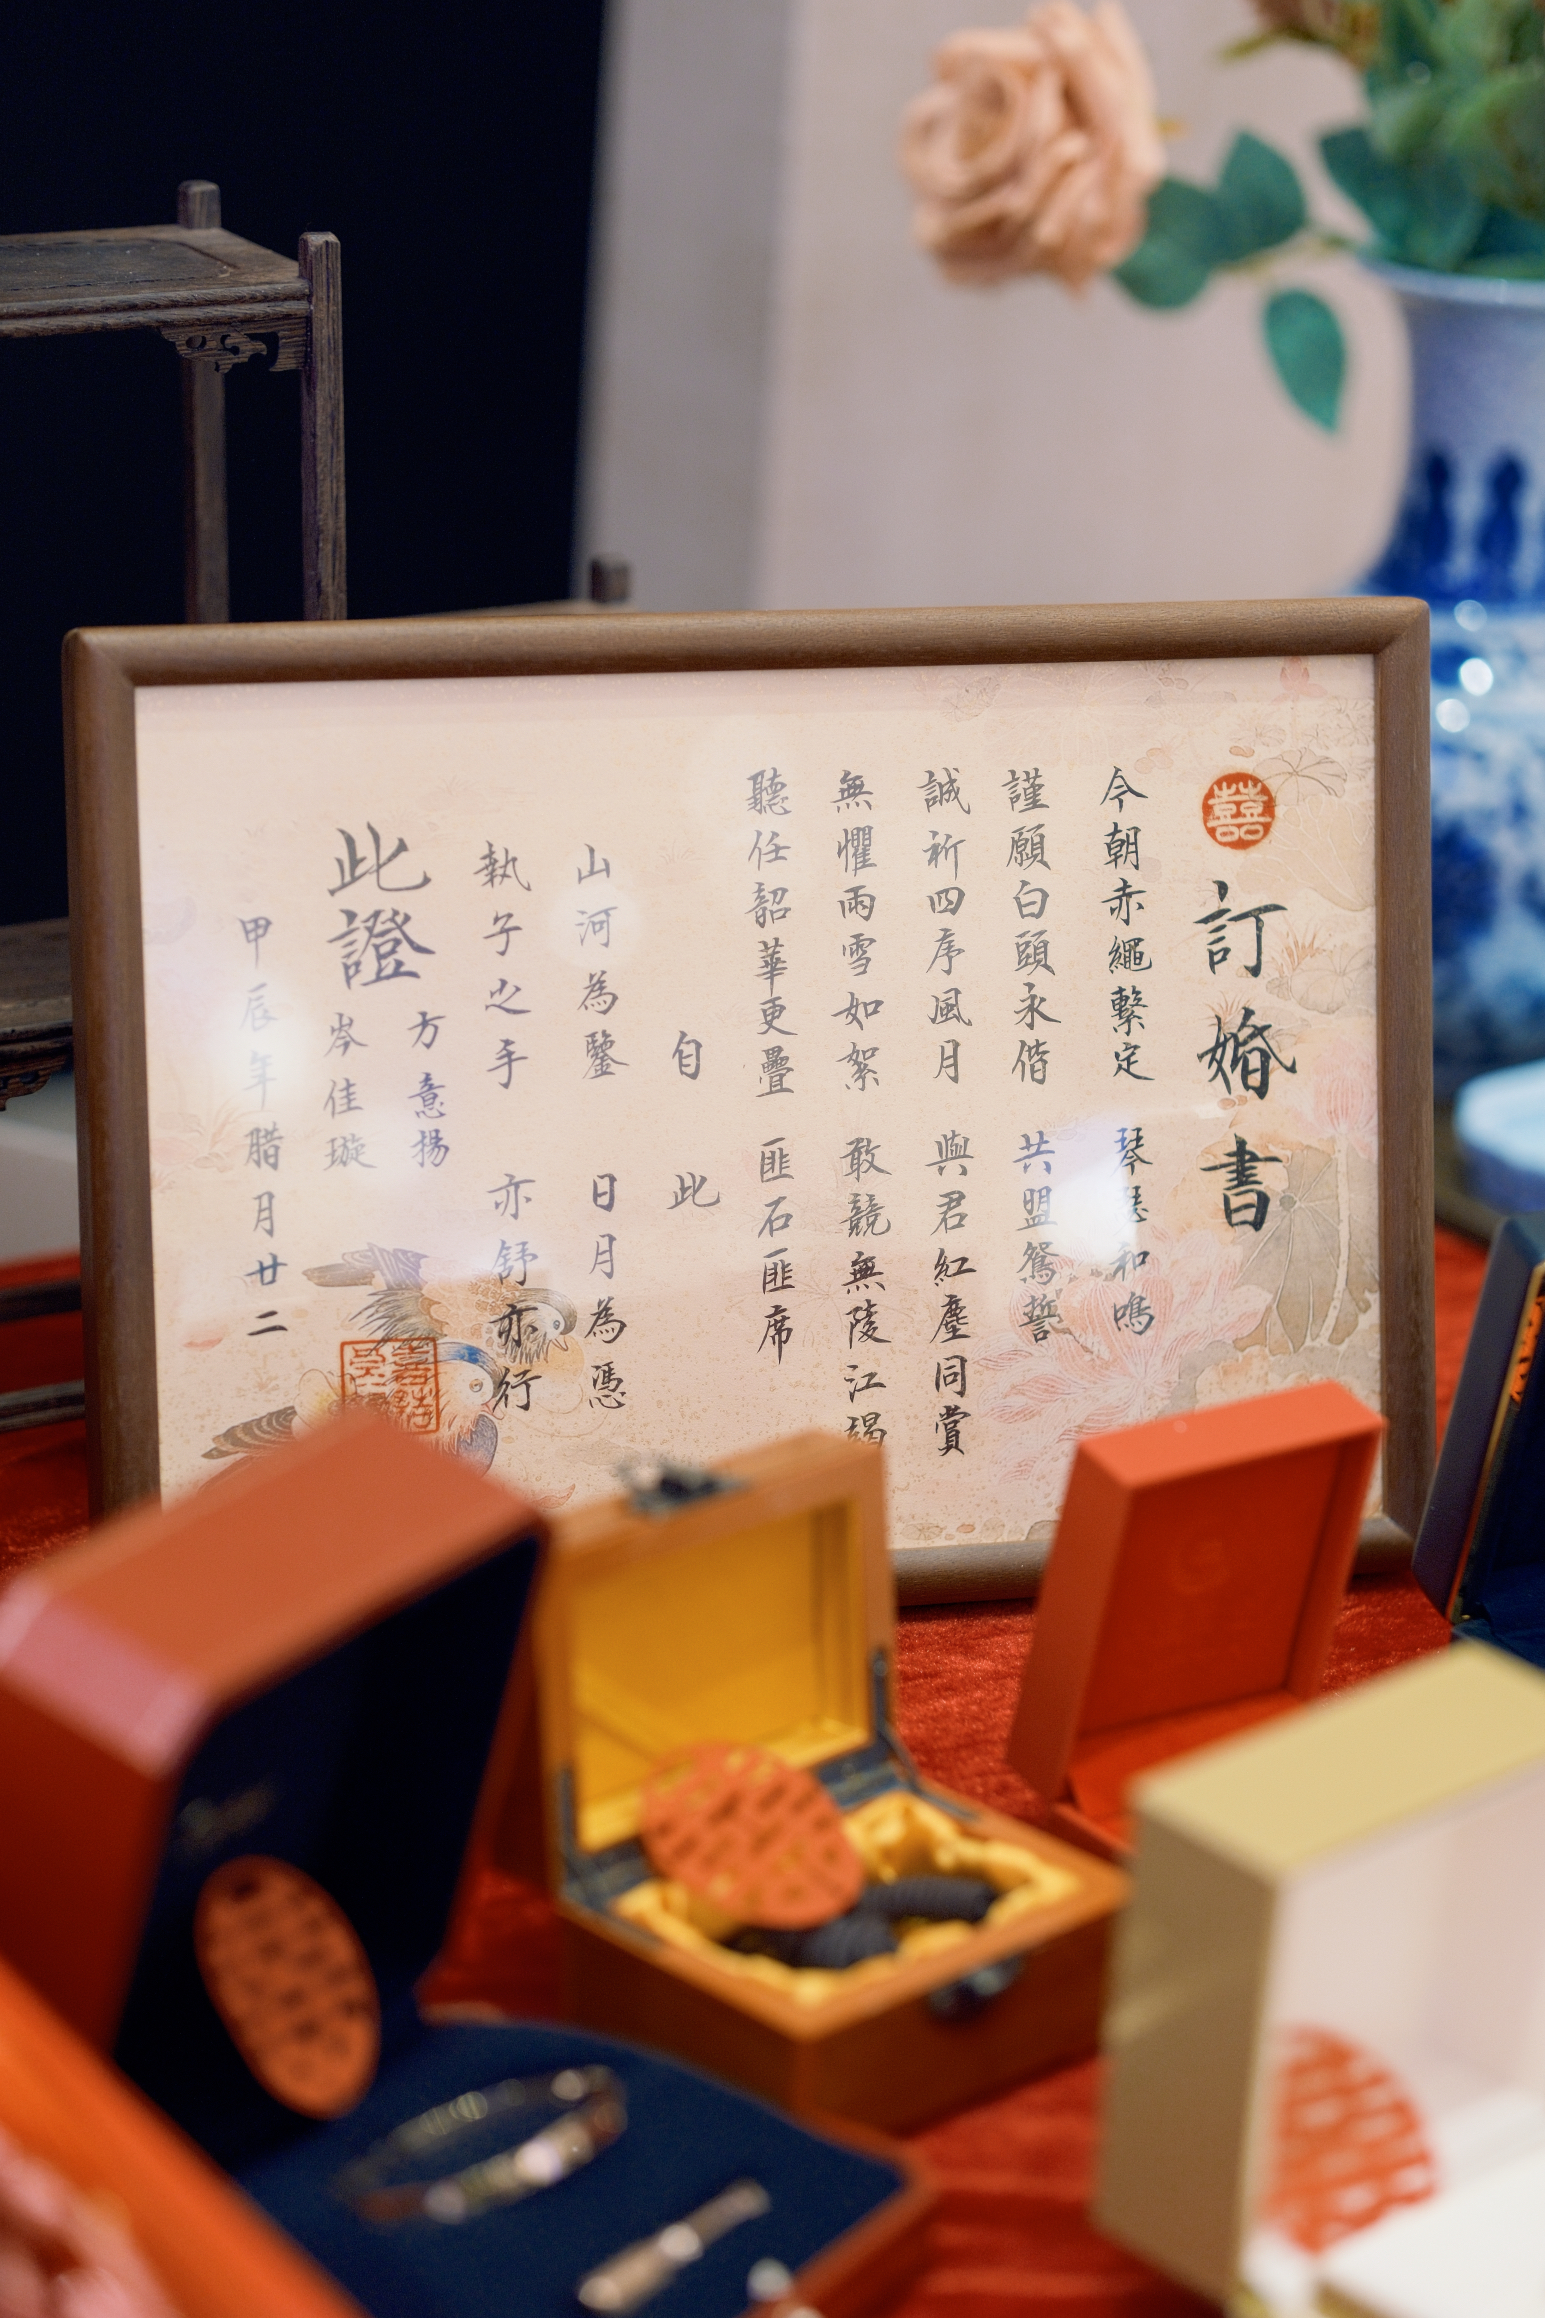 囍
訂婚書
今朝赤繩繫定 琴瑟和鳴
謹願白頭永偕 共盟鴛誓
誠祈四序風月 與君紅塵同賞
無懼雨雪如絮 敢競無陵江竭
聽任韶華更疊 匪石匪席
自此
山河為鑒 日月為憑
執子之手 亦舒亦行
方意揚
此證
岑佳璇
甲辰年腊月廿二